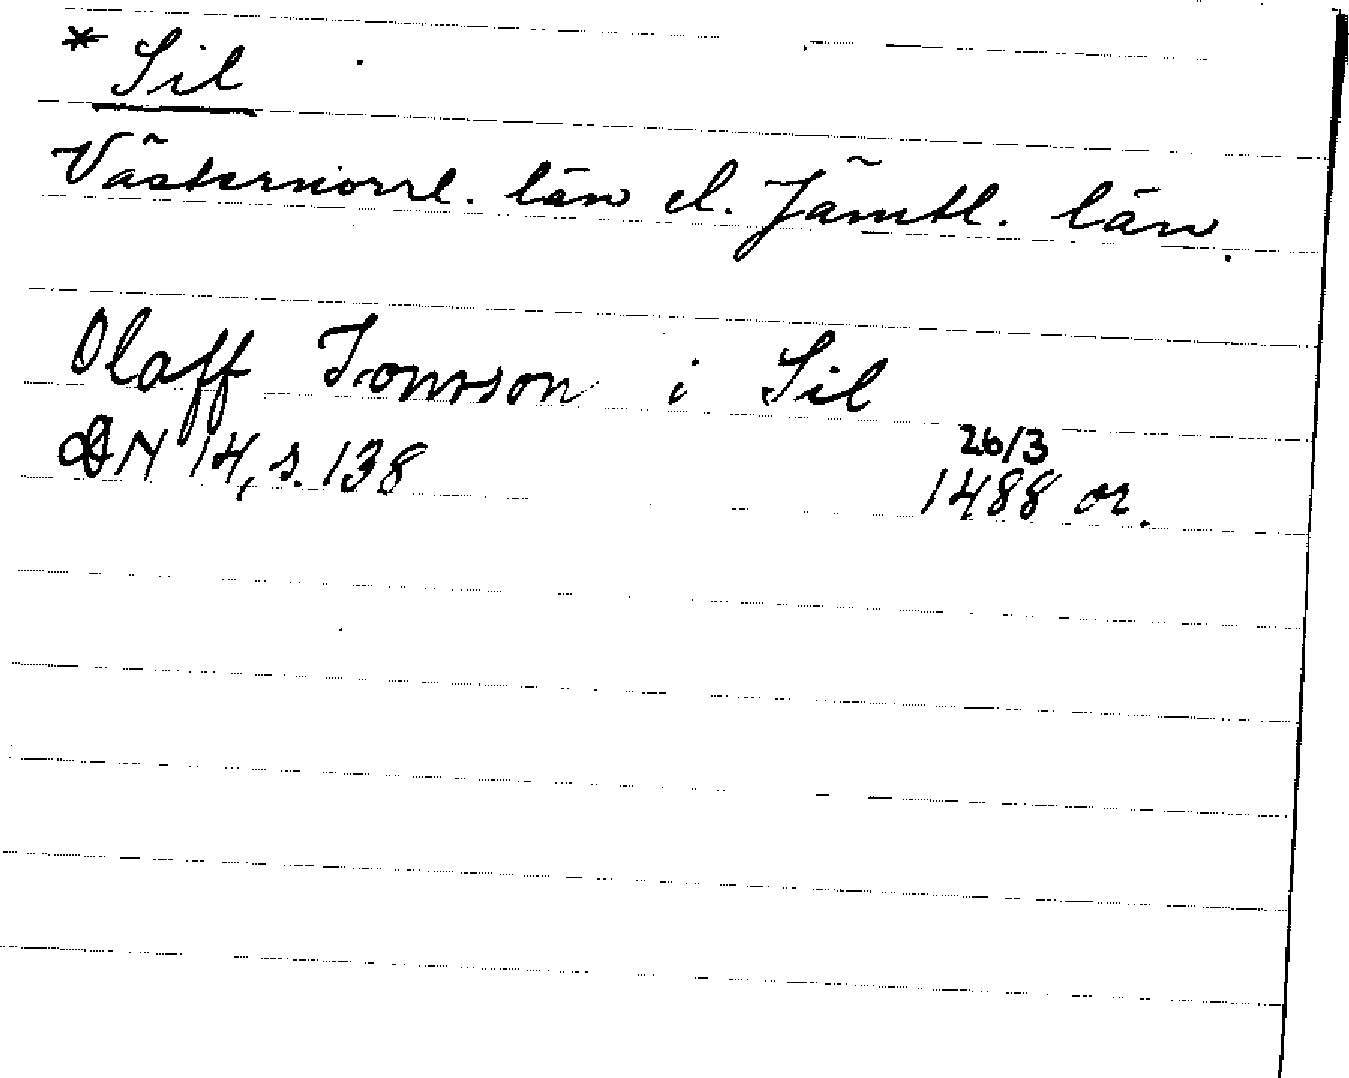 * Sil
Västernorrl. län el. Jämtl. län.
Olaff Jonsson i Sil
DN 14, s. 138 26/3 1488 or.